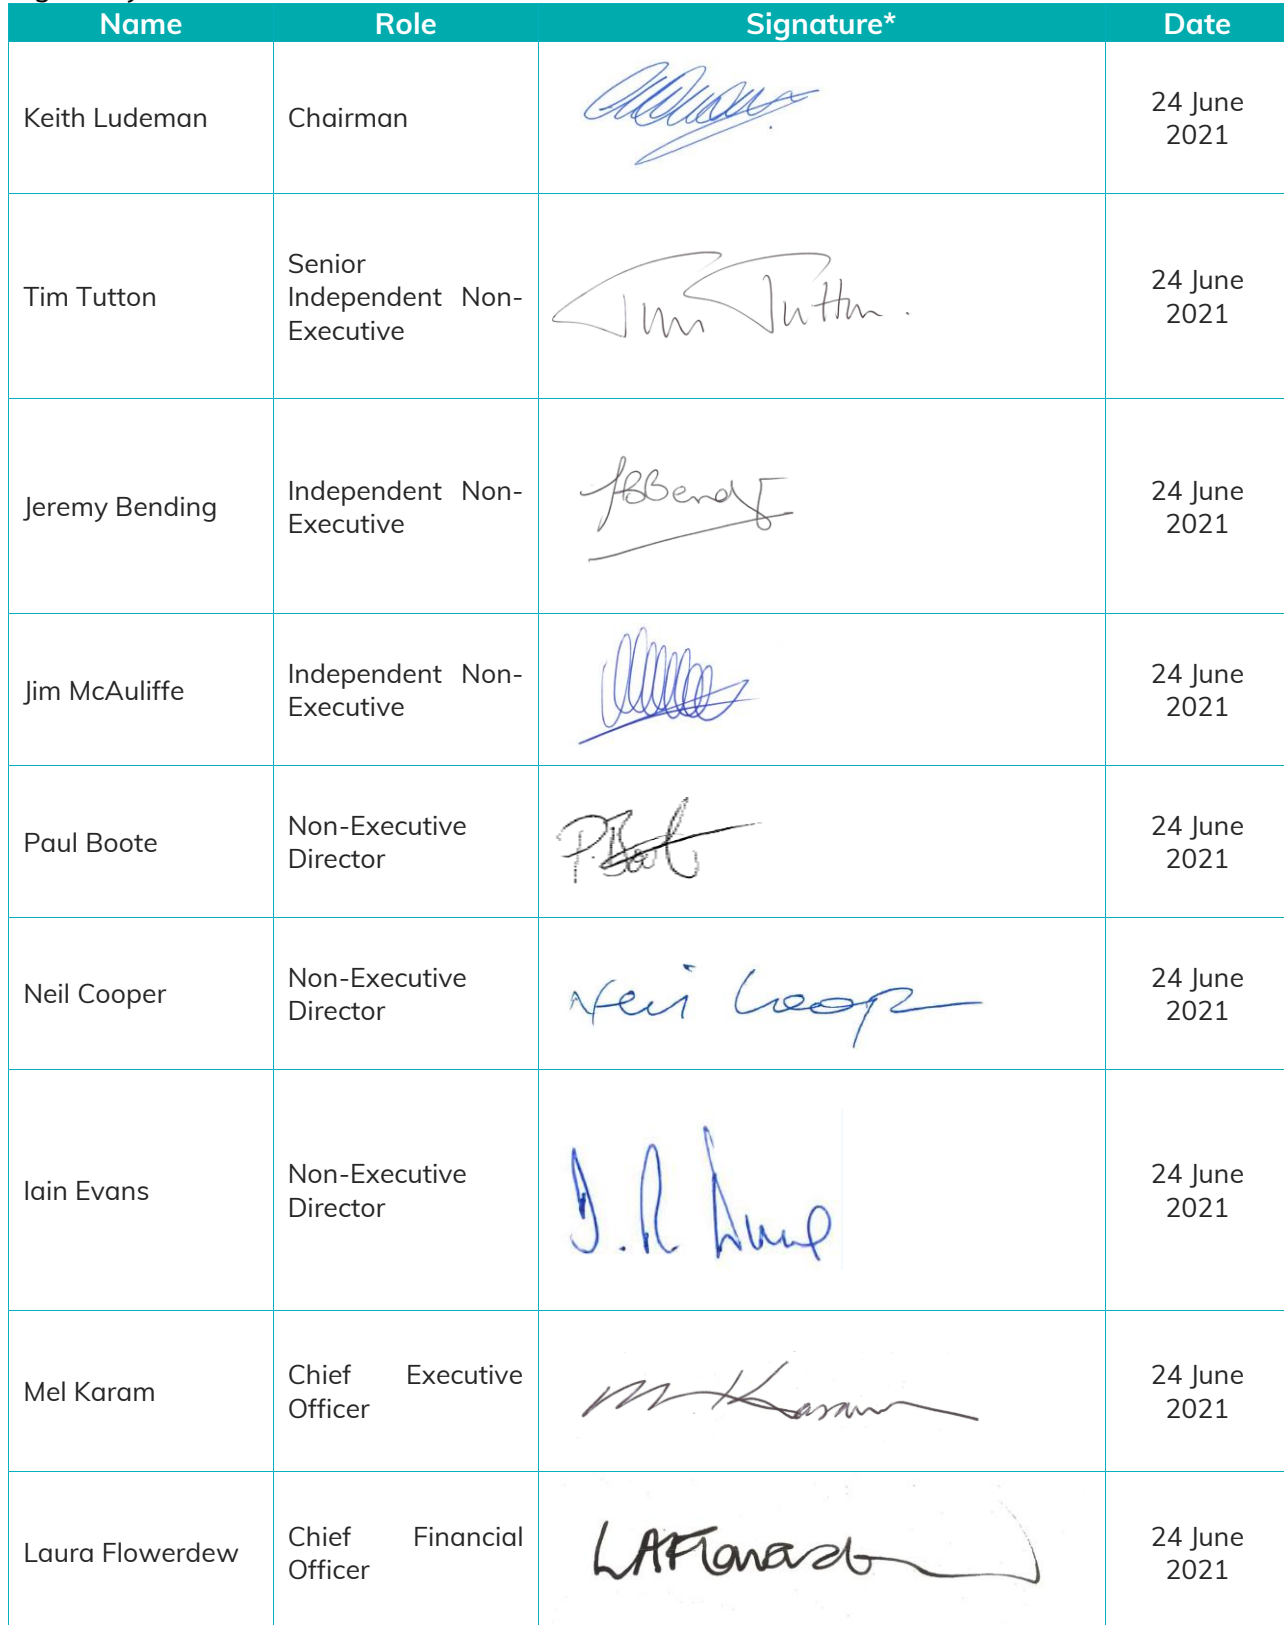 Name Role Signature* Date
Keith Ludeman Chairman 24 June
2021
Tim Tutton Senior
Independent Non-
Executive Tim Tutton. 24 June
2021
Jeremy Bending Independent Non-
Executive 24 June
2021
Jim McAuliffe Independent Non-
Executive 24 June
2021
Paul Boote Non-Executive
Director P.Boot 24 June
2021
Neil Cooper Non-Executive
Director Neil Coop 24 June
2021
Iain Evans Non-Executive
Director 24 June
2021
Mel Karam Chief Executive
Officer M Karam 24 June
2021
Laura Flowerdew Chief Financial
Officer 24 June
2021